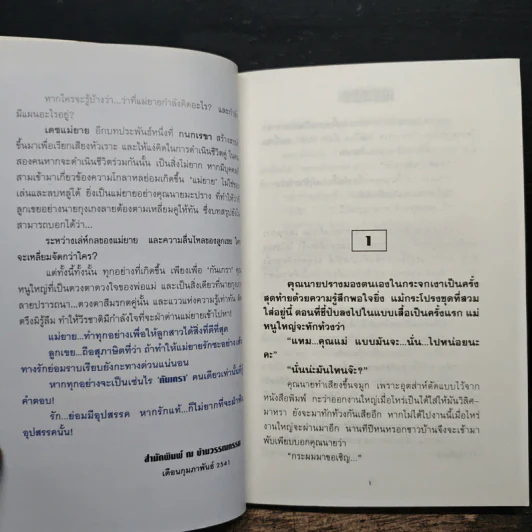 หากใครจะรู้บ้างว่า...ว่าที่แม่ยายกำลังคิดอะไร? และกำลัง
มีแผนอะไรอยู่?
เดชแม่ยาย อีกบทประพันธ์หนึ่งที่ กนกเรขา สร้าง
ขึ้นมาเพื่อเรียกเสียงหัวเราะ และให้แง่คิดในการดำเนินชีวิตคู่
สองคนหากจะดำเนินชีวิตร่วมกันนั้น เป็นสิ่งไม่ยาก หากมี
สามเข้ามาเกี่ยวข้องความโกลาหลย่อมเกิดขึ้น "แม่ยาย" ไม่ใช่
เล่นและลบหลู่ได้ ยิ่งเป็นแม่ยายอย่างคุณนายมะปราง ที่ทำให้
ลูกเขยอย่างนายกุงเกงลายต้องตามเหลี่ยมคูให้ทัน ซึ่งบทสรุป
สามารถบอกได้ว่า...
ระหว่างเล่ห์กลของแม่ยาย และความลื่นไหลของลูกเขย ใคร
จะเหลี่ยมจัดกว่าใคร?
แต่ทั้งนี้ทั้งนั้น ทุกอย่างที่เกิดขึ้น เพียงเพื่อ "กันเกรา"
หนูใหญ่ที่เป็นดวงตาดวงใจของพ่อแม่ และเป็นสิ่งเดียวที่นาย
ลายปรารถนา...ดวงตาสีมรกตคู่นั้น และแววแห่งความรู้เท่าทัน
ตรึงมิรู้ลืม ทำให้วีรชาติมีกำลังใจที่จะฝ่าด่านแม่ยายเข้าไปหา!
แม่ยาย...ทำทุกอย่างเพื่อให้ลูกสาวได้สิ่งที่ดีที่สุด
ลูกเขย...ถือสุภาษิตที่ว่า ถ้าทำให้แม่ยายรักซะอย่าง
ทางรักย่อมราบเรียบยังกะทางด่วนแน่นอน
หากทุกอย่างจะเป็นเช่นไร "กันเกรา" คนเดียวเท่านั้น
คำตอบ!
รัก...ย่อมมีอุปสรรค หากรักแท้...ก็ไม่ยากที่จะฝ่า
อุปสรรคนั้น!
สำนักพิมพ์ ณ บ้านวรรณกรรม
เดือนกุมภาพันธ์ 2541
1
คุณนายปรางมองตนเองในกระจกเงาเป็นครั้ง
สุดท้ายด้วยความรู้สึกพอใจยิ่ง แม้กระโปรงชุดที่สวม
ใส่อยู่นี้ ตอนที่ซี้ปับลงไปในแบบเสื้อเป็นครั้งแรก แม่
หนูใหญ่จะทักท้วงว่า
"แหม...คุณแม่ แบบมันจะ...นั่น...ไปหน่อยนะ
คะ"
"นั่นน่ะมันไหนจ๊ะ?"
คุณนายทำเสียงขึ้นจมูก เพราะอุตส่าห์ตัดแบบไว้จาก
หนังสือพิมพ์ กะว่าออกงานใหญ่เมื่อไหร่เป็นได้ใส่ให้มันวิลิศ-
มาหรา ยังจะมาทักท้วงกันเสียอีก หากไม่ได้ไปงานนี้เมื่อไหร่
งานใหญ่จะผ่านมาอีก นานทีปีหนหรอกชาวบ้านจึงจะเข้ามา
พับเพียบบอกคุณนายว่า
"กระผมมาขอเชิญ..."
1